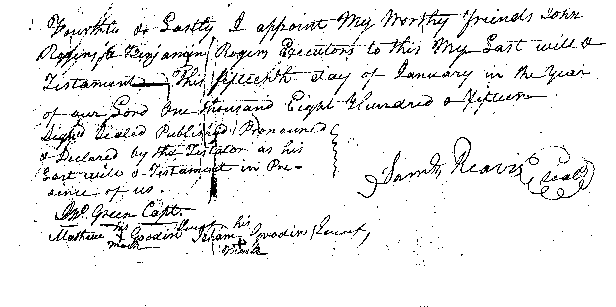 Fourthly & Lastly I appoint My Worthy friends John
Rogers & Benjamin Rogers Executors to this My Last will &
Testament This fifteenth day of January in the Year
of our Lord One thousand Eight Hundred & fifteen
Signed Sealed Published Pronounced
& Declared by the Testator as his
Last will & Testament in Pre-
sence of us.
Saml Reavis Seal
Green Capt.
his his
Mathew Goodin Isham Goodin
mark mark